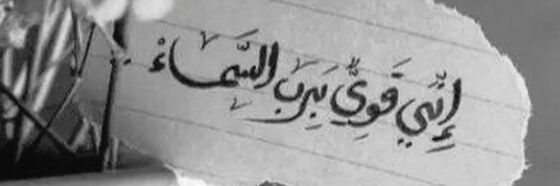 إِنَّنِي قَوِيٌّ بِرَبِّ السَّمَاءْ